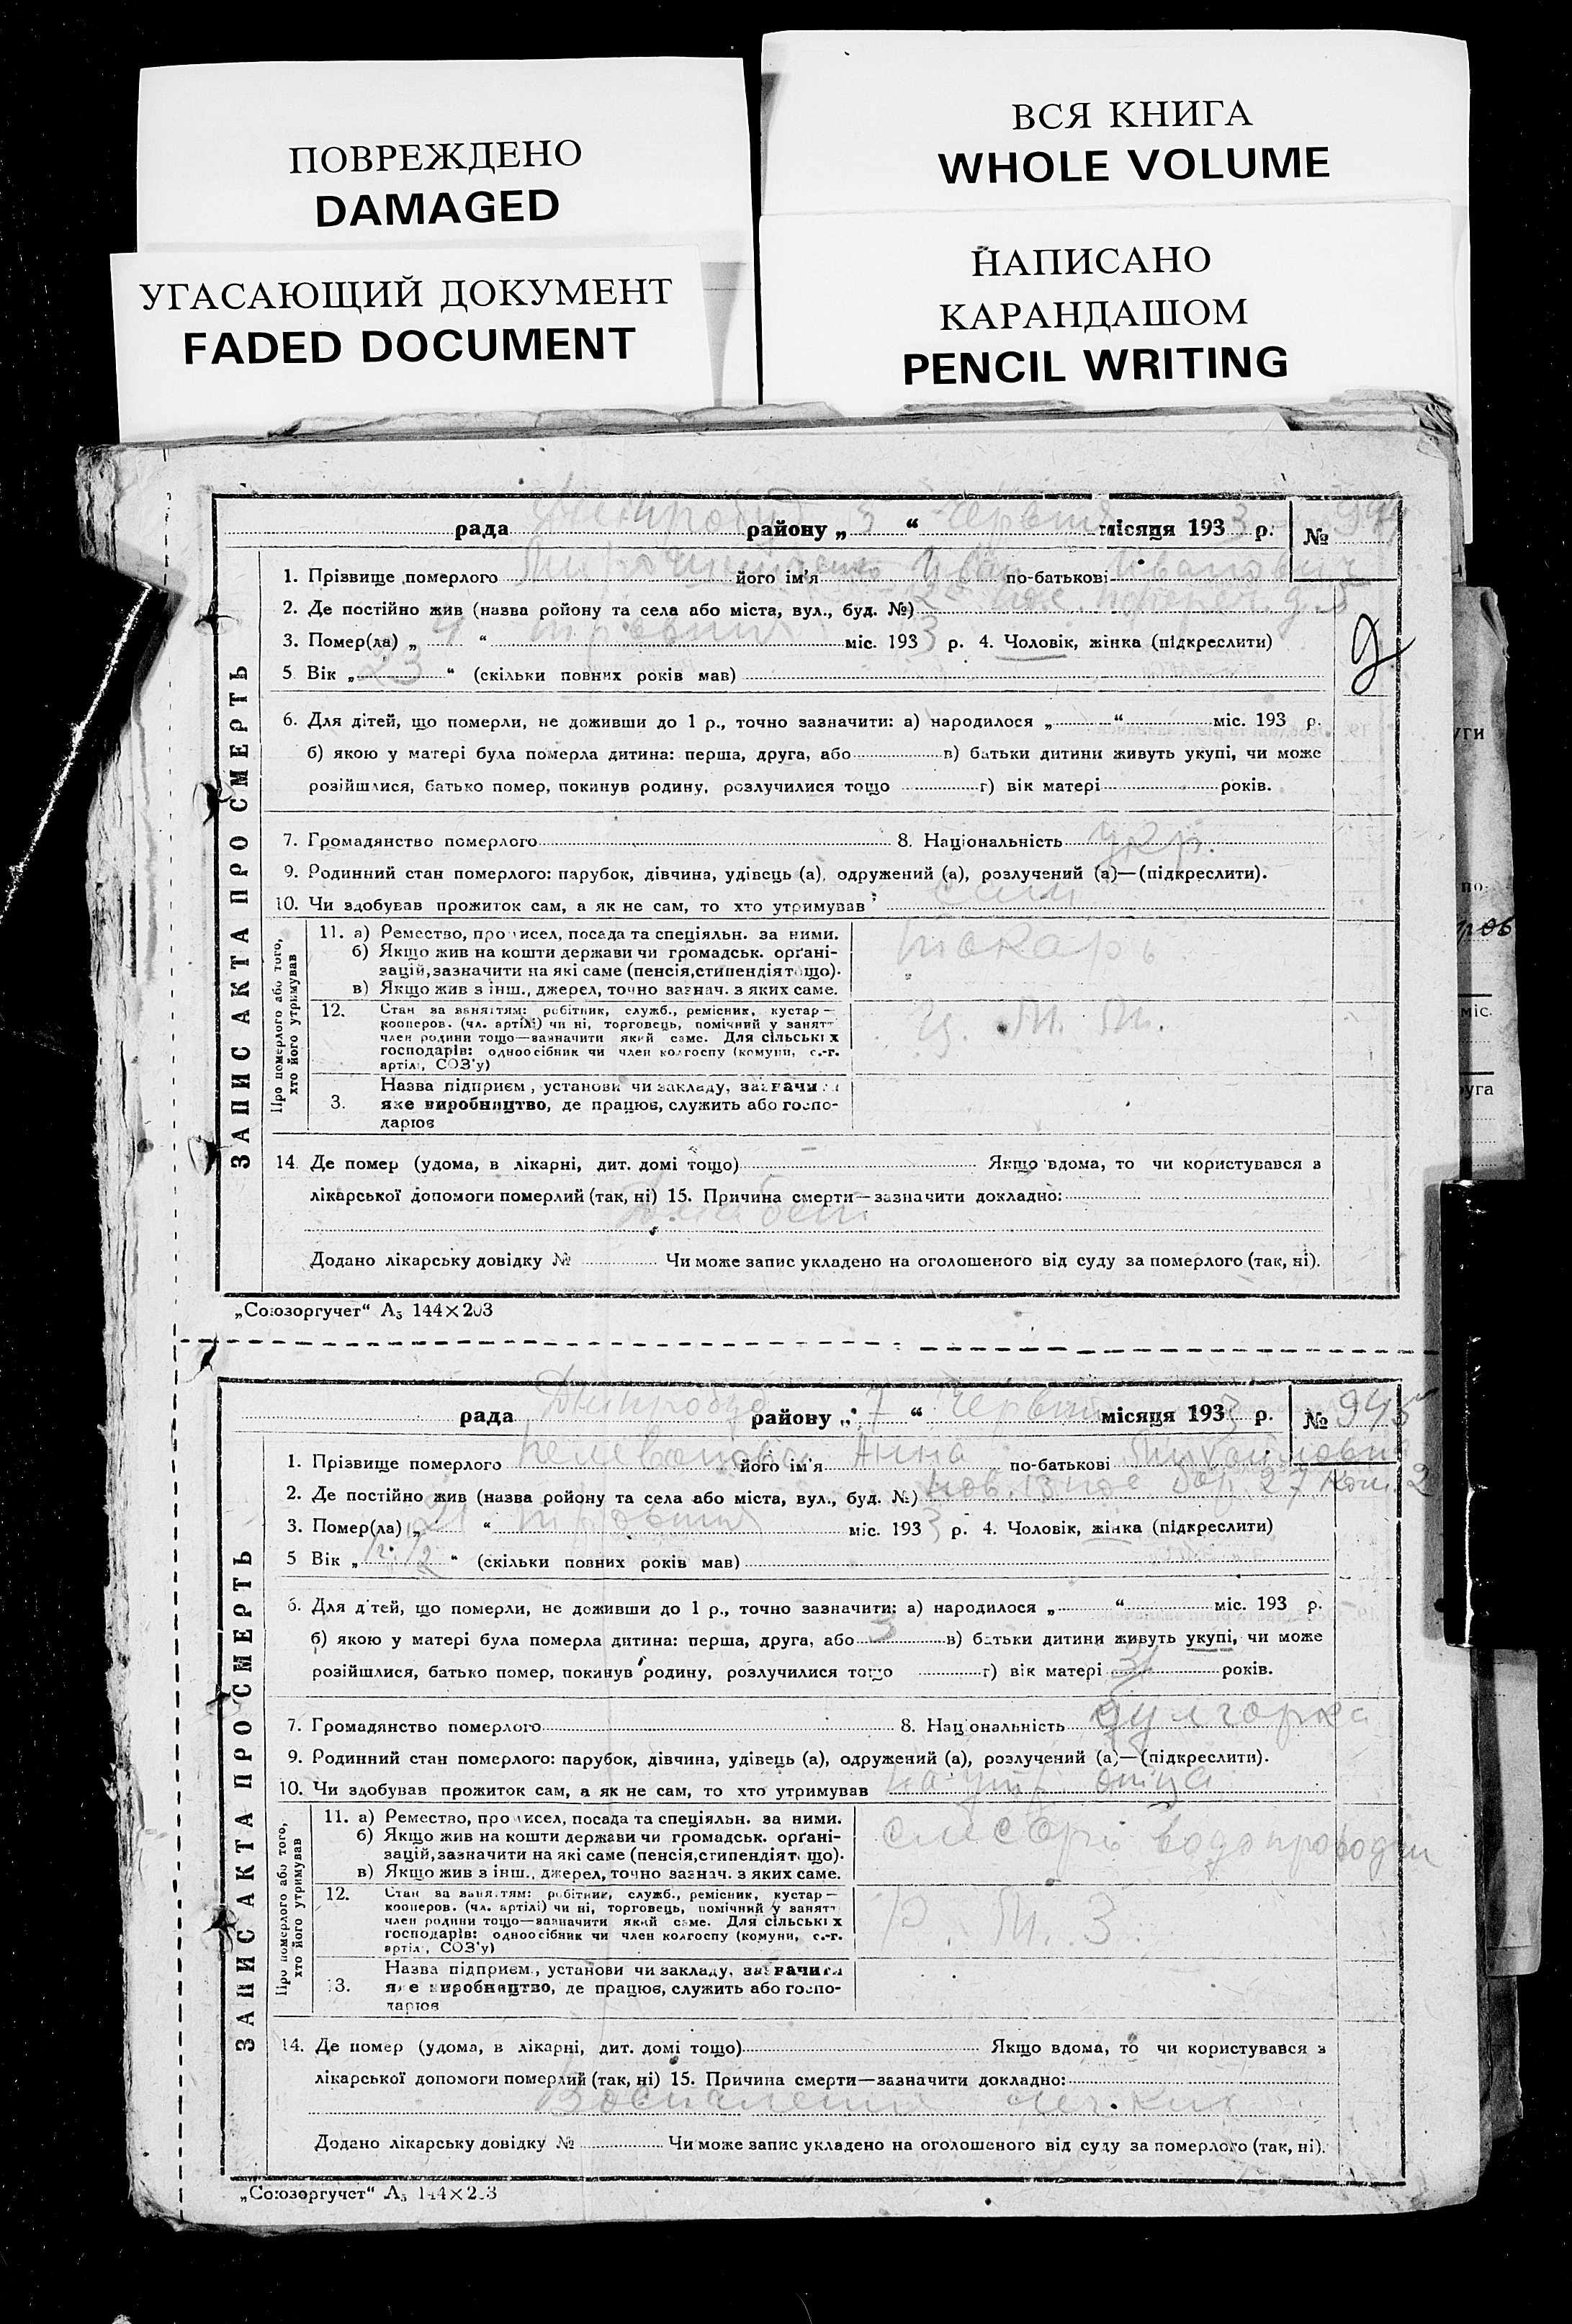 ПОВРЕЖДЕНО
DAMAGED
УГАСАЮЩИЙ ДОКУМЕНТ
FADED DOCUMENT
ВСЯ КНИГА
WHOLE VOLUME
НАПИСАНО
КАРАНДАШОМ
PENCIL WRITING
ЗАПИС АКТА ПРО СМЕРТЬ
рада району „ 5 “ Червня місяця 1933 р. № 944
1. Прізвище померлого його ім'я Иван по-батькові Иванович
2. Де постійно жив (назва ройону та села або міста, вул., буд. №)
3. Помер(ла) „ 4 “ травня міс. 1933 р. 4. Чоловік, жінка (підкреслити)
5 Вік „ 23 “ (скільки повних років мав)
6. Для дітей, що померли, не доживши до 1 р., точно зазначити: а) народилося „ “ міс. 193 р.
б) якою у матері була померла дитина: перша, друга, або в) батьки дитини живуть укупі, чи може
розійшлися, батько помер, покинув родину, розлучилися тощо г) вік матері років.
7. Громадянство померлого 8. Національність укр.
9. Родинний стан померлого: парубок, дівчина, удівець (а), одружений (а), розлучений (а)—(підкреслити).
10. Чи здобував прожиток сам, а як не сам, то хто утримував сам
Про померлого або того, хто його утримував
11. а) Ремество, промисел, посада та спеціяльн. за ними. токарь
б) Якщо жив на кошти держави чи громадськ. орґані-
зацій, зазначити на які саме (пенсія, стипендія тощо).
в) Якщо жив з інш., джерел, точно зазнач. з яких саме.
12. Стан за заняттям: робітник, служб., ремісник, кустар—
кооперов. (чл. артілі) чи ні, торговець, помічний у занятт
член родини тощо—зазначити який саме. Для сільських
господарів: одноосібник чи член колгоспу (комуни, с.-г.
артілі, СОЗ'у)
3. Назва підприєм., установи чи закладу, зазначити
яке виробництво, де працює, служить або госпо-
дарює
14. Де помер (удома, в лікарні, дит. домі тощо) Якщо вдома, то чи користувався з
лікарської допомоги померлий (так, ні) 15. Причина смерти—зазначити докладно:
Диабет
Додано лікарську довідку № Чи може запис укладено на оголошеного від суду за померлого (так, ні).
„Союзоргучет“ А₅ 144×203
ЗАПИС АКТА ПРО СМЕРТЬ
рада району „ 7 “ Червня місяця 1933 р. № 945
1. Прізвище померлого його ім'я Анна по-батькові Михайловна
2. Де постійно жив (назва ройону та села або міста, вул., буд. №) бар. 27 ком. 2
3. Помер(ла) „ “ травня міс. 1933 р. 4. Чоловік, жінка (підкреслити)
5 Вік „ “ (скільки повних років мав)
6. Для дітей, що померли, не доживши до 1 р., точно зазначити: а) народилося „ “ міс. 193 р.
б) якою у матері була померла дитина: перша, друга, або 3 в) батьки дитини живуть укупі, чи може
розійшлися, батько помер, покинув родину, розлучилися тощо г) вік матері 31 років.
7. Громадянство померлого 8. Національність
9. Родинний стан померлого: парубок, дівчина, удівець (а), одружений (а), розлучений (а)—(підкреслити).
10. Чи здобував прожиток сам, а як не сам, то хто утримував на утр. отца
Про померлого або того, хто його утримував
11. а) Ремество, промисел, посада та спеціяльн. за ними. слесарь водопроводчи
б) Якщо жив на кошти держави чи громадськ. орґані-
зацій, зазначити на які саме (пенсія, стипендія тощо).
в) Якщо жив з інш., джерел, точно зазнач. з яких саме.
12. Стан за заняттям: робітник, служб., ремісник, кустар—
кооперов. (чл. артілі) чи ні, торговець, помічний у занятт
член родини тощо—зазначити який саме. Для сільських
господарів: одноосібник чи член колгоспу (комуни, с.-г.
артілі, СОЗ'у)
3. Назва підприєм., установи чи закладу, зазначити
яке виробництво, де працює, служить або госпо-
дарює
14. Де помер (удома, в лікарні, дит. домі тощо) Якщо вдома, то чи користувався з
лікарської допомоги померлий (так, ні) 15. Причина смерти—зазначити докладно:
Воспаление
Додано лікарську довідку № Чи може запис укладено на оголошеного від суду за померлого (так, ні).
„Союзоргучет“ А₅ 144×203